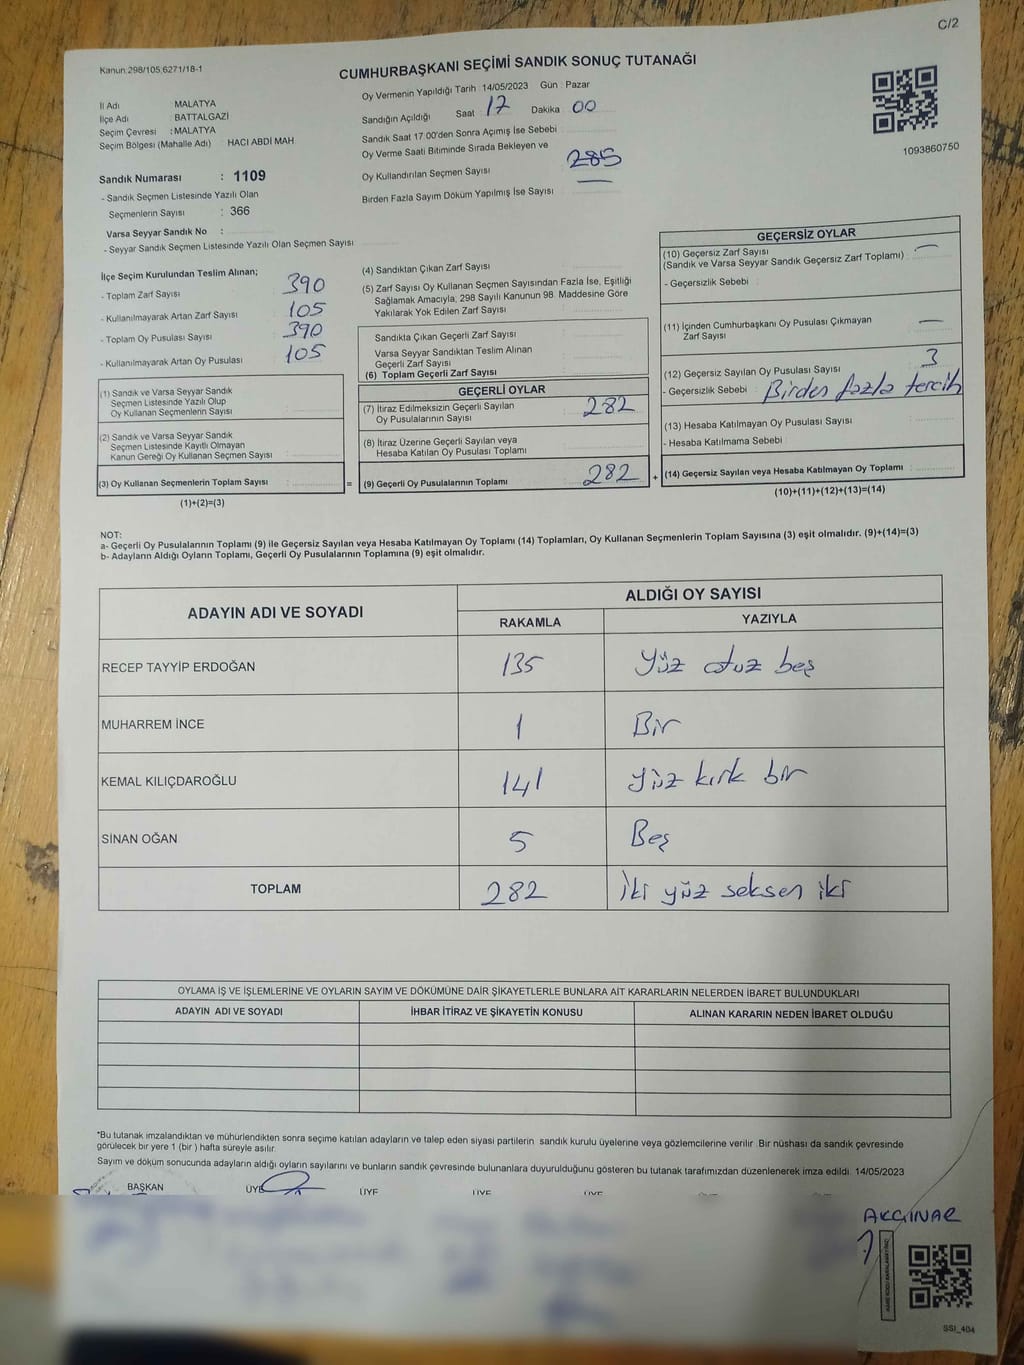 C/2
Kanun:298/105,6271/18-1
CUMHURBAŞKANI SEÇİMİ SANDIK SONUÇ TUTANAĞI
İl Adı : MALATYA
İlçe Adı : BATTALGAZİ
Seçim Çevresi : MALATYA
Seçim Bölgesi (Mahalle Adı) HACI ABDİ MAH
Sandık Numarası : 1109
- Sandık Seçmen Listesinde Yazılı Olan
Seçmenlerin Sayısı : 366
Varsa Seyyar Sandık No :
- Seyyar Sandık Seçmen Listesinde Yazılı Olan Seçmen Sayısı
Oy Vermenin Yapıldığı Tarih 14/05/2023 Gün Pazar
Sandığın Açıldığı Saat 17 Dakika 00
Sandık Saat 17:00'den Sonra Açımış İse Sebebi
Oy Verme Saati Bitiminde Sırada Bekleyen ve
Oy Kullandırılan Seçmen Sayısı 285
Birden Fazla Sayım Döküm Yapılmış İse Sayısı —
1093860750
İlçe Seçim Kurulundan Teslim Alınan;
- Toplam Zarf Sayısı 390
- Kullanılmayarak Artan Zarf Sayısı 105
- Toplam Oy Pusulası Sayısı 390
- Kullanılmayarak Artan Oy Pusulası 105
(1) Sandık ve Varsa Seyyar Sandık
Seçmen Listesinde Yazılı Olup
Oy Kullanan Seçmenlerin Sayısı :
(2) Sandık ve Varsa Seyyar Sandık
Seçmen Listesinde Kayıtlı Olmayan
Kanun Gereği Oy Kullanan Seçmen Sayısı :
(3) Oy Kullanan Seçmenlerin Toplam Sayısı :
(1)+(2)=(3)
(4) Sandıktan Çıkan Zarf Sayısı :
(5) Zarf Sayısı Oy Kullanan Seçmen Sayısından Fazla İse, Eşitliği
Sağlamak Amacıyla, 298 Sayılı Kanunun 98. Maddesine Göre
Yakılarak Yok Edilen Zarf Sayısı :
Sandıkta Çıkan Geçerli Zarf Sayısı :
Varsa Seyyar Sandıktan Teslim Alınan
Geçerli Zarf Sayısı :
(6) Toplam Geçerli Zarf Sayısı :
GEÇERLİ OYLAR
(7) İtiraz Edilmeksizin Geçerli Sayılan
Oy Pusulalarının Sayısı : 282
(8) İtiraz Üzerine Geçerli Sayılan veya
Hesaba Katılan Oy Pusulası Toplamı :
= (9) Geçerli Oy Pusulalarının Toplamı : 282 +
GEÇERSİZ OYLAR
(10) Geçersiz Zarf Sayısı —
(Sandık ve Varsa Seyyar Sandık Geçersiz Zarf Toplamı) :
- Geçersizlik Sebebi :
(11) İçinden Cumhurbaşkanı Oy Pusulası Çıkmayan —
Zarf Sayısı
(12) Geçersiz Sayılan Oy Pusulası Sayısı : 3
- Geçersizlik Sebebi : Birden fazla tercih
(13) Hesaba Katılmayan Oy Pusulası Sayısı :
- Hesaba Katılmama Sebebi :
(14) Geçersiz Sayılan veya Hesaba Katılmayan Oy Toplamı :
(10)+(11)+(12)+(13)=(14)
NOT:
a- Geçerli Oy Pusulalarının Toplamı (9) ile Geçersiz Sayılan veya Hesaba Katılmayan Oy Toplamı (14) Toplamları, Oy Kullanan Seçmenlerin Toplam Sayısına (3) eşit olmalıdır. (9)+(14)=(3)
b- Adayların Aldığı Oyların Toplamı, Geçerli Oy Pusulalarının Toplamına (9) eşit olmalıdır.
ADAYIN ADI VE SOYADI ALDIĞI OY SAYISI
RAKAMLA YAZIYLA
RECEP TAYYİP ERDOĞAN 135 Yüz otuz beş
MUHARREM İNCE 1 Bir
KEMAL KILIÇDAROĞLU 141 Yüz kırk bir
SİNAN OĞAN 5 Beş
TOPLAM 282 İki yüz seksen iki
OYLAMA İŞ VE İŞLEMLERİNE VE OYLARIN SAYIM VE DÖKÜMÜNE DAİR ŞİKAYETLERLE BUNLARA AİT KARARLARIN NELERDEN İBARET BULUNDUKLARI
ADAYIN ADI VE SOYADI İHBAR İTİRAZ VE ŞİKAYETİN KONUSU ALINAN KARARIN NEDEN İBARET OLDUĞU
*Bu tutanak imzalandıktan ve mühürlendikten sonra seçime katılan adayların ve talep eden siyasi partilerin sandık kurulu üyelerine veya gözlemcilerine verilir. Bir nüshası da sandık çevresinde
görülecek bir yere 1 (bir) hafta süreyle asılır.
Sayım ve döküm sonucunda adayların aldığı oyların sayılarını ve bunların sandık çevresinde bulunanlara duyurulduğunu gösteren bu tutanak tarafımızdan düzenlenerek imza edildi. 14/05/2023
BAŞKAN ÜYE ÜYE ÜYE ÜYE
SSI_404